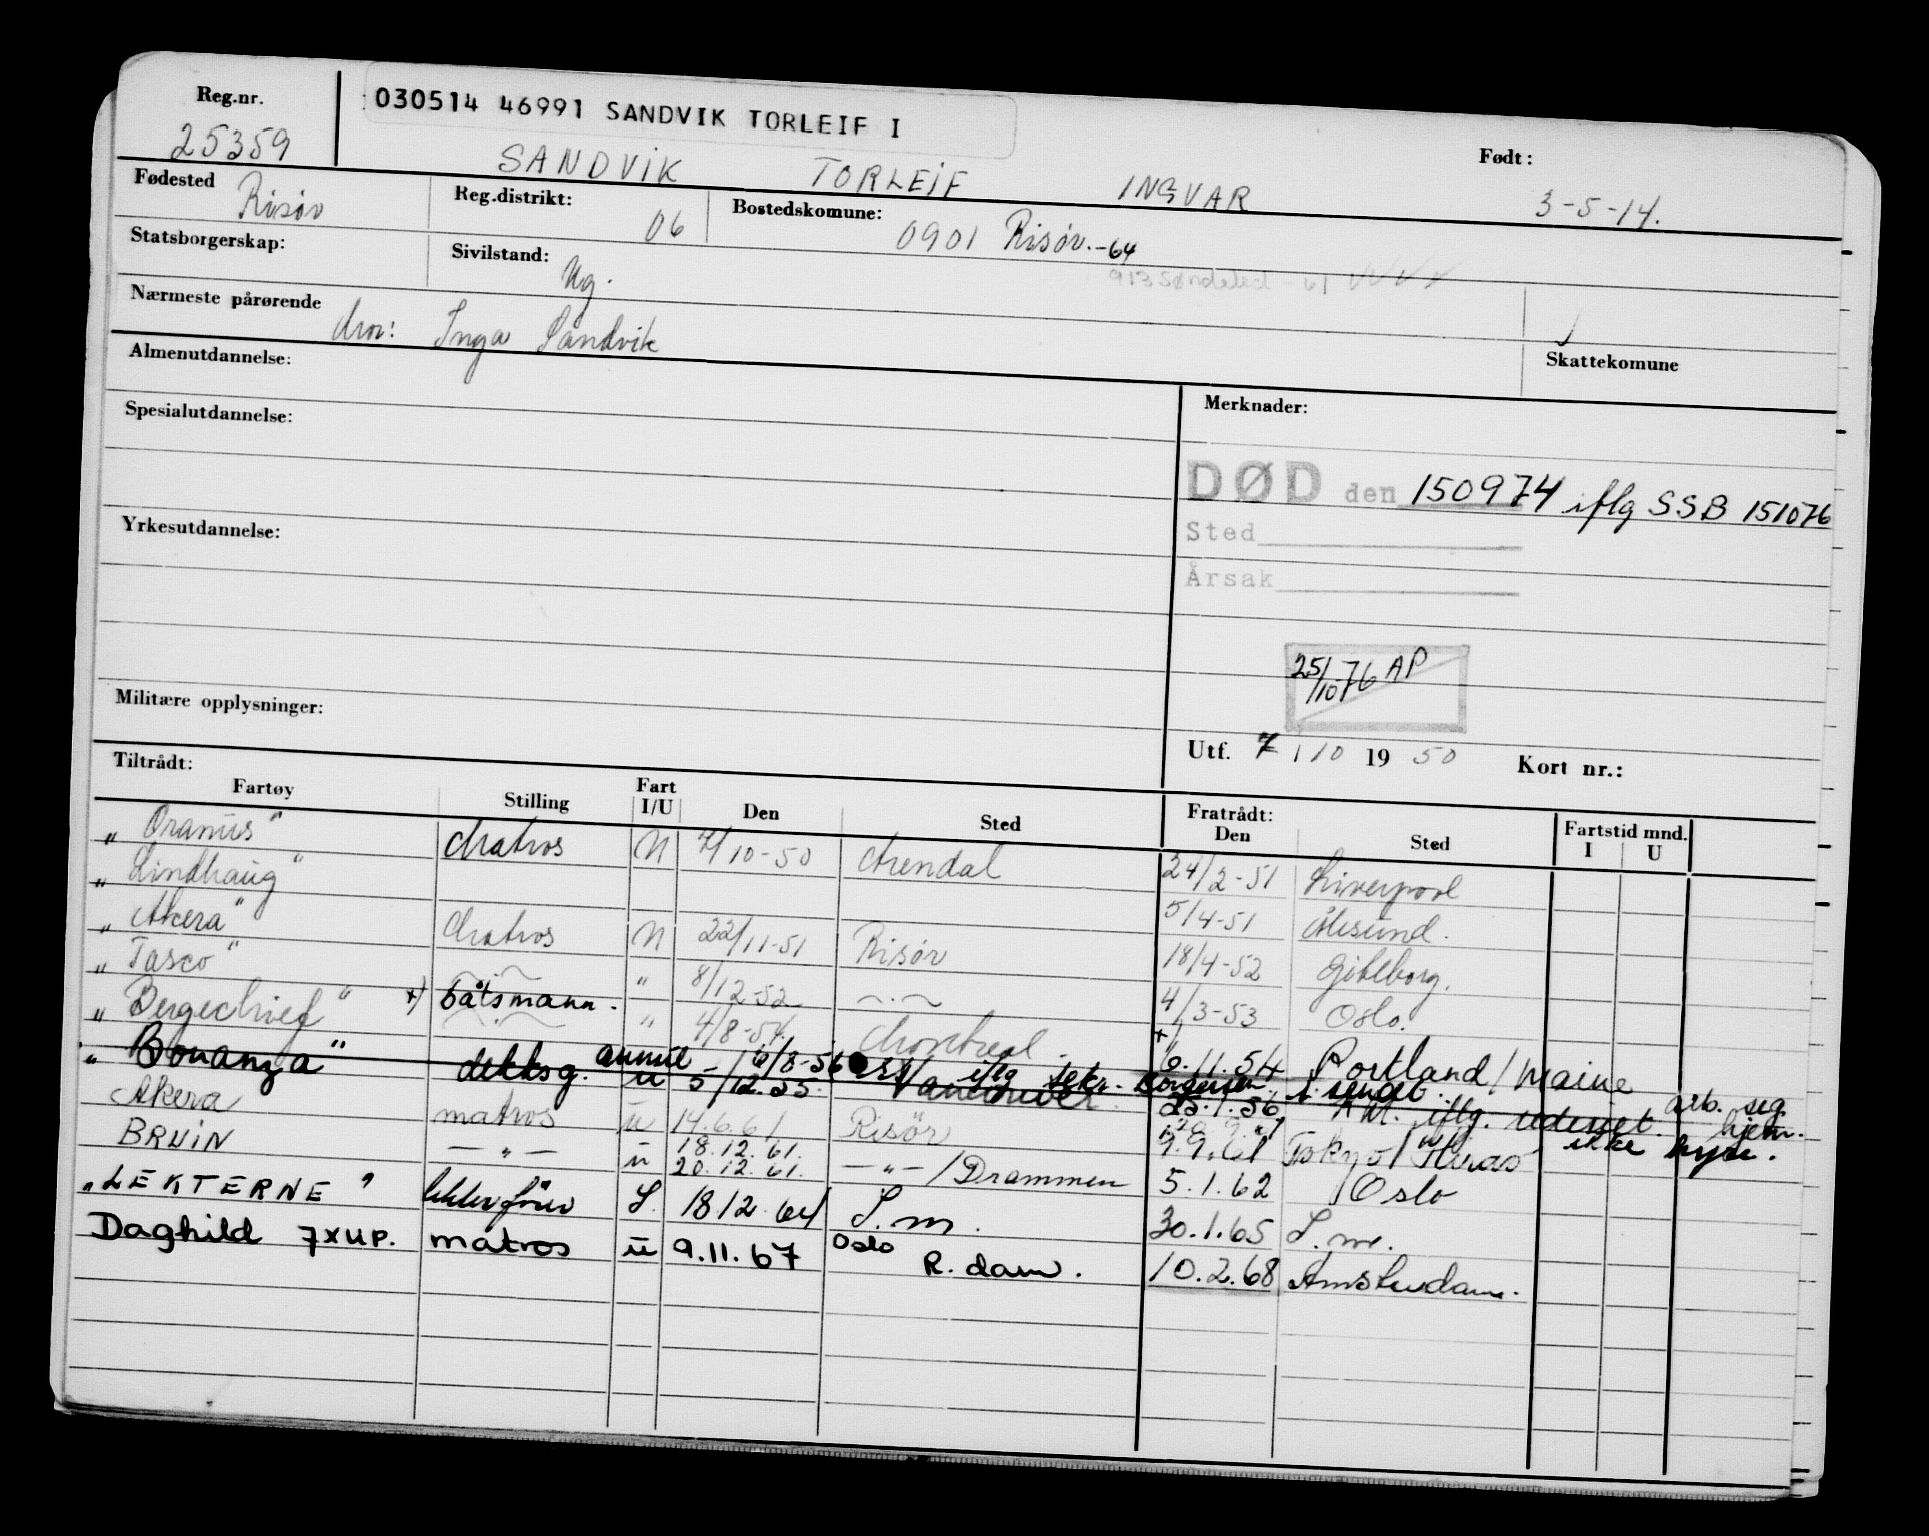 Reg.nr.
25359
030514 46991 SANDVIK TORLEIF I
SANDVIK TORLEIF INGVAR
Født:
3-5-14.
Fødested Risør
Reg.distrikt: 06
Bostedskomune: 0901 Risør.-64
913 Søndeled - 61
Statsborgerskap:
Sivilstand: Ug.
Nærmeste pårørende
Mor: Inga Sandvik
Skattekomune
Almenutdannelse:
Merknader:
Spesialutdannelse:
DØD den 150974 iflg SSB 151076
Sted
Årsak
Yrkesutdannelse:
25/10-76 AP
Militære opplysninger:
Utf. 7/10 1950 Kort nr.:
Tiltrådt:
Fartøy Stilling Fart I/U Den Sted Fratrådt: Den Sted Fartstid mnd. I U
" Oranus " Matros N 7/10-50 Arendal 24/2-51 Liverpool
" Lindhaug " 5/4-51 Ålesund.
" Akera " Matros N 22/11-51 Risør 18/4-52 Gøteborg.
" Tasco " —"— " 8/12-52 —"— 4/3-53 Oslo.
" Bergechief " x) båtsmann. " 4/8-54. Montreal x) 6.11.54 Portland/Maine
annul 6/8-56 iflg sekr. Borgersen. arb. seg hjem.
" Bonanza " dekksg. u 5/12.55. Vancouver. 25.1.56 iflg. rederiet ikke hyre.
Akera matros u 14.6.61 Risør 9.9.61 Tokyo/
BRUIN —"— u 18.12.61. 20.12.61. —"—/Drammen 5.1.62 Oslo
" LEKTERNE " lekterfører L. 1812.64 L.m. 30.1.65 L.m.
Daghild 7xUP. matros u 9.11.67 Oslo R.dam. 10.2.68 Amsterdam.